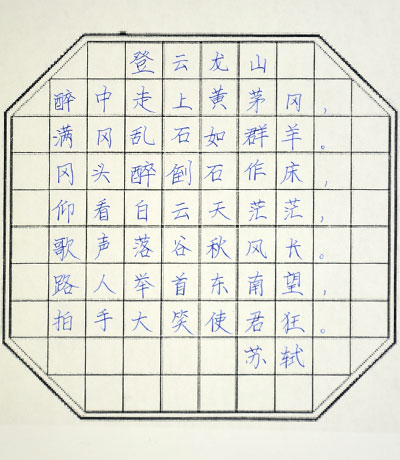 登云龙山
醉中走上黄茅冈，
满冈乱石如群羊。
冈头醉倒石作床，
仰看白云天茫茫，
歌声落谷秋风长。
路人举首东南望，
拍手大笑使君狂。
苏轼